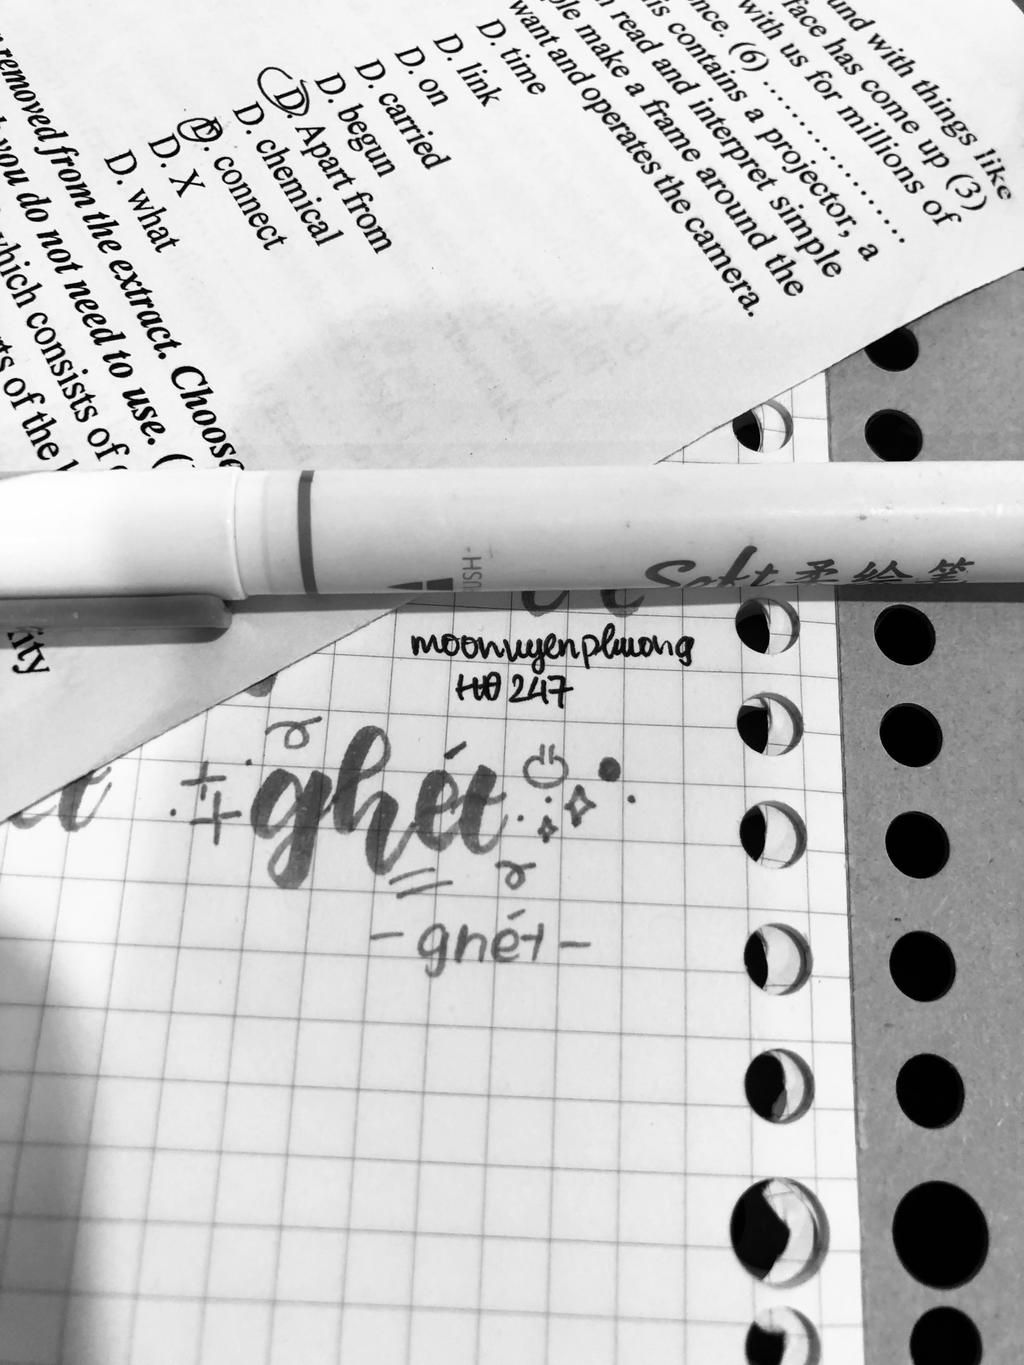 und with things like
face has come up (3)
with us for millions of
nce. (6) ........................
is contains a projector, a
n read and interpret simple
ple make a frame around the
want and operates the camera.
D. time
D. link
D. on
D. carried
D. begun
D. Apart from
D. chemical
D. connect
D. X
D. what
removed from the extract. Choose
h you do not need to use. (
which consists of
rts of the
ity
USH
Soft 柔绘笔
moonuyenphuong
HĐ 247
ghét
- ghét -